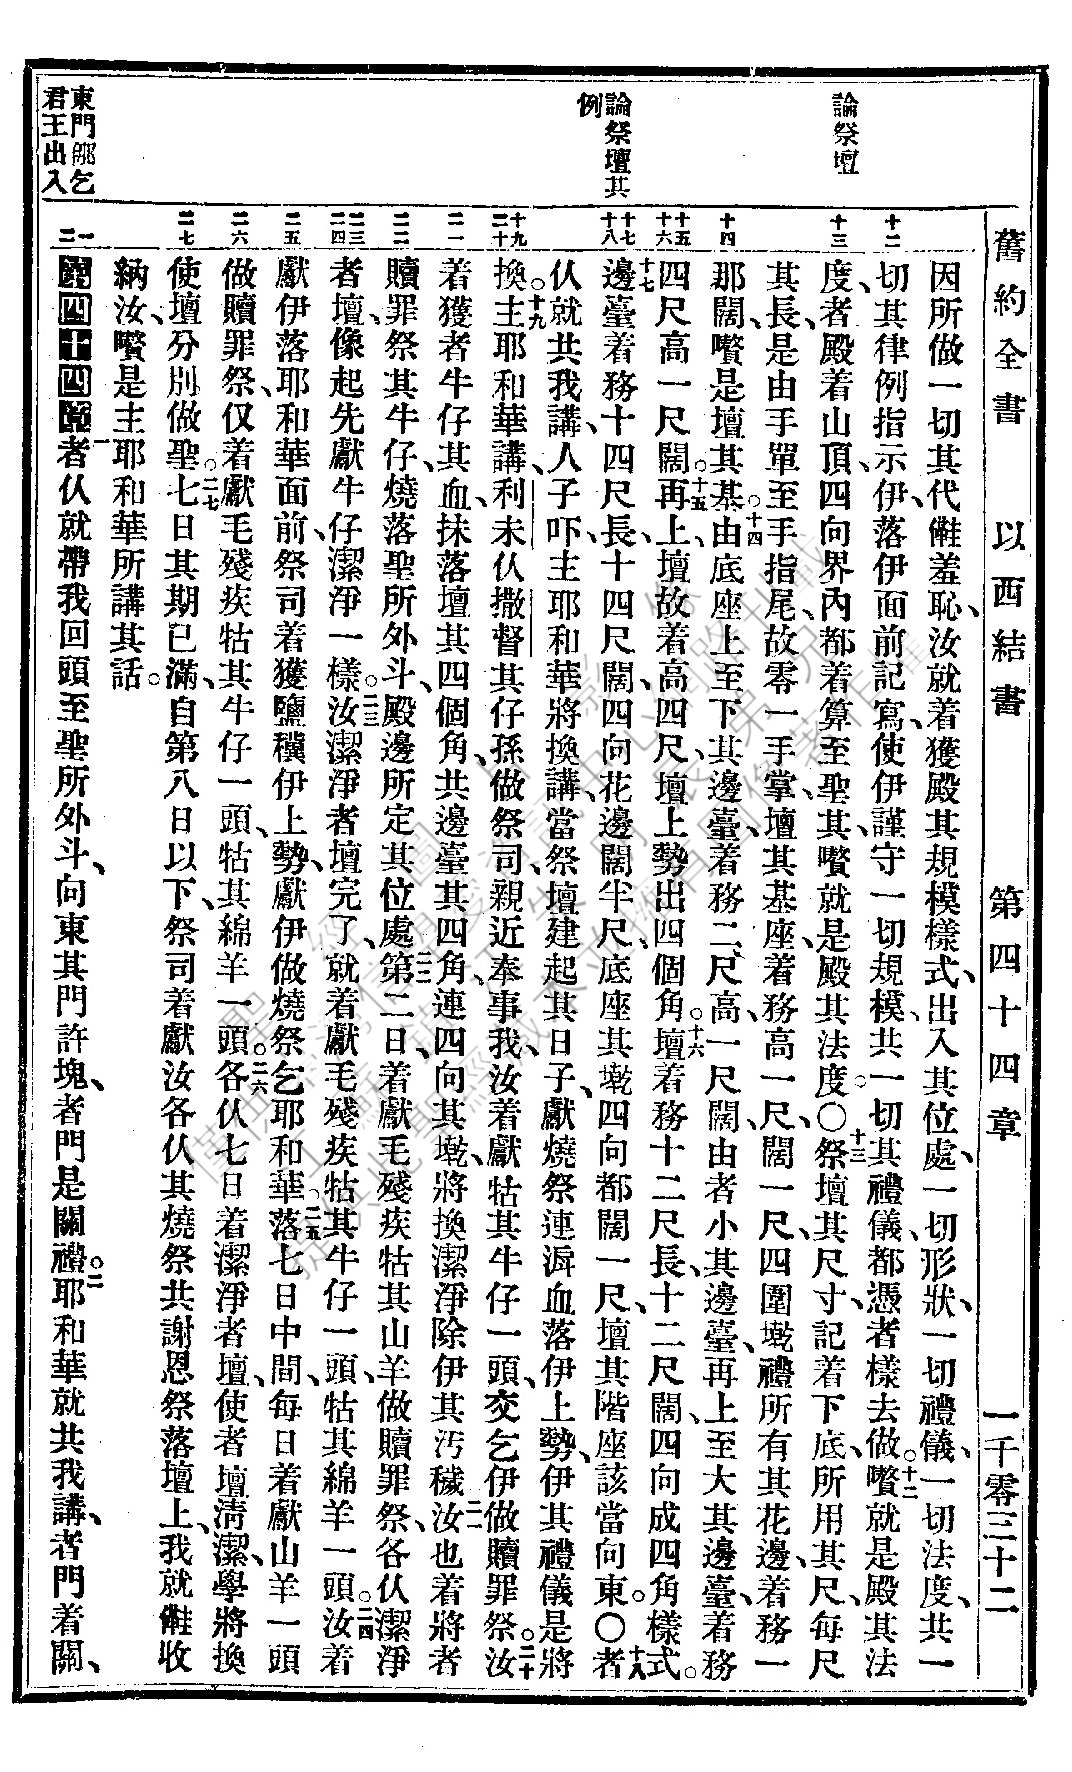 舊約全書 以西結書 第四十四章 一千零三十二
論祭壇
論祭壇其例
東門那乞君王出入
十二
十三
十四
十五 十六
十七 十八
十九 二十
二一
二二
二三 二四
二五
二六
二七
一 二
因所做一切其代㑚羞恥、汝就着獲殿其規模樣式、出入其位處、一切形狀、一切禮儀、一切法度、共一
切其律例指示伊、落伊面前記寫、使伊謹守一切規模、共一切其禮儀、都憑者樣去做。十二 嚽就是殿其法
度、者殿着山頂、四向界內都着算至聖其、嚽就是殿其法度。○十三 祭壇其尺寸記着下底、所用其尺、每尺
其長、是由手單至手指尾、故零一手掌、壇其基座、着務高一尺、闊一尺、四圍墘禮所有其花邊、着務一
那闊、嚽是壇其基。十四 由底座上至下其邊臺、着務二尺高、一尺闊、由者小其邊臺、再上至大其邊臺、着務
四尺高一尺闊。十五 再上、壇故着高四尺、壇上勢出四個角。十六 壇着務十二尺長、十二尺闊、四向成四角樣式。
十七 邊臺着務十四尺長、十四尺闊、四向花邊闊半尺、底座其墘四向都闊一尺、壇其階座該當向東。○十八 者
仈就共我講、人子吓、主耶和華將換講、當祭壇建起其日子、獻燒祭連湃血落伊上勢、伊其禮儀是將
換。十九 主耶和華講、利未仈撒督其仔孫做祭司、親近奉事我、汝着獻牯其牛仔一頭、交乞伊做贖罪祭。二十 汝
着獲者牛仔其血、抹落壇其四個角、共邊臺其四角、連四向其墘、將換潔淨除伊其汚穢。二一 汝也着將者
贖罪祭其牛仔、燒落聖所外斗、殿邊所定其位處。二二 第二日、着獻毛殘疾牯其山羊做贖罪祭、各仈潔淨
者壇、像起先獻牛仔潔淨一樣。二三 汝潔淨者壇完了、就着獻毛殘疾牯其牛仔一頭、牯其綿羊一頭。二四 汝着
獻伊落耶和華面前、祭司着獲鹽䆀伊上勢、獻伊做燒祭乞耶和華。二五 落七日中間、每日着獻山羊一頭
做贖罪祭、仅着獻毛殘疾牯其牛仔一頭、牯其綿羊一頭。二六 各仈七日着潔淨者壇、使者壇淸潔、學將換
使壇分別做聖。二七 七日其期已滿、自第八日以下、祭司着獻汝各仈其燒祭共謝恩祭落壇上、我就㑚收
納汝、嚽是主耶和華所講其話。
第四十四章 一 者仈就帶我回頭至聖所外斗、向東其門許塊、者門是關禮。二 耶和華就共我講、者門着關、